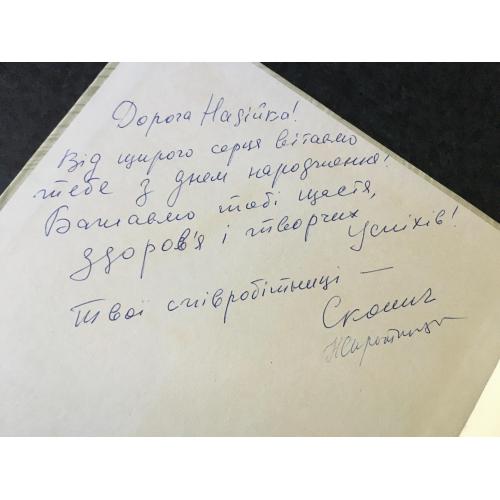 Дорога Надійко!
Від щирого серця вітаємо
тебе з днем народження!
Бажаємо тобі щастя,
здоров'я і творчих
успіхів!
Твої співробітниці —